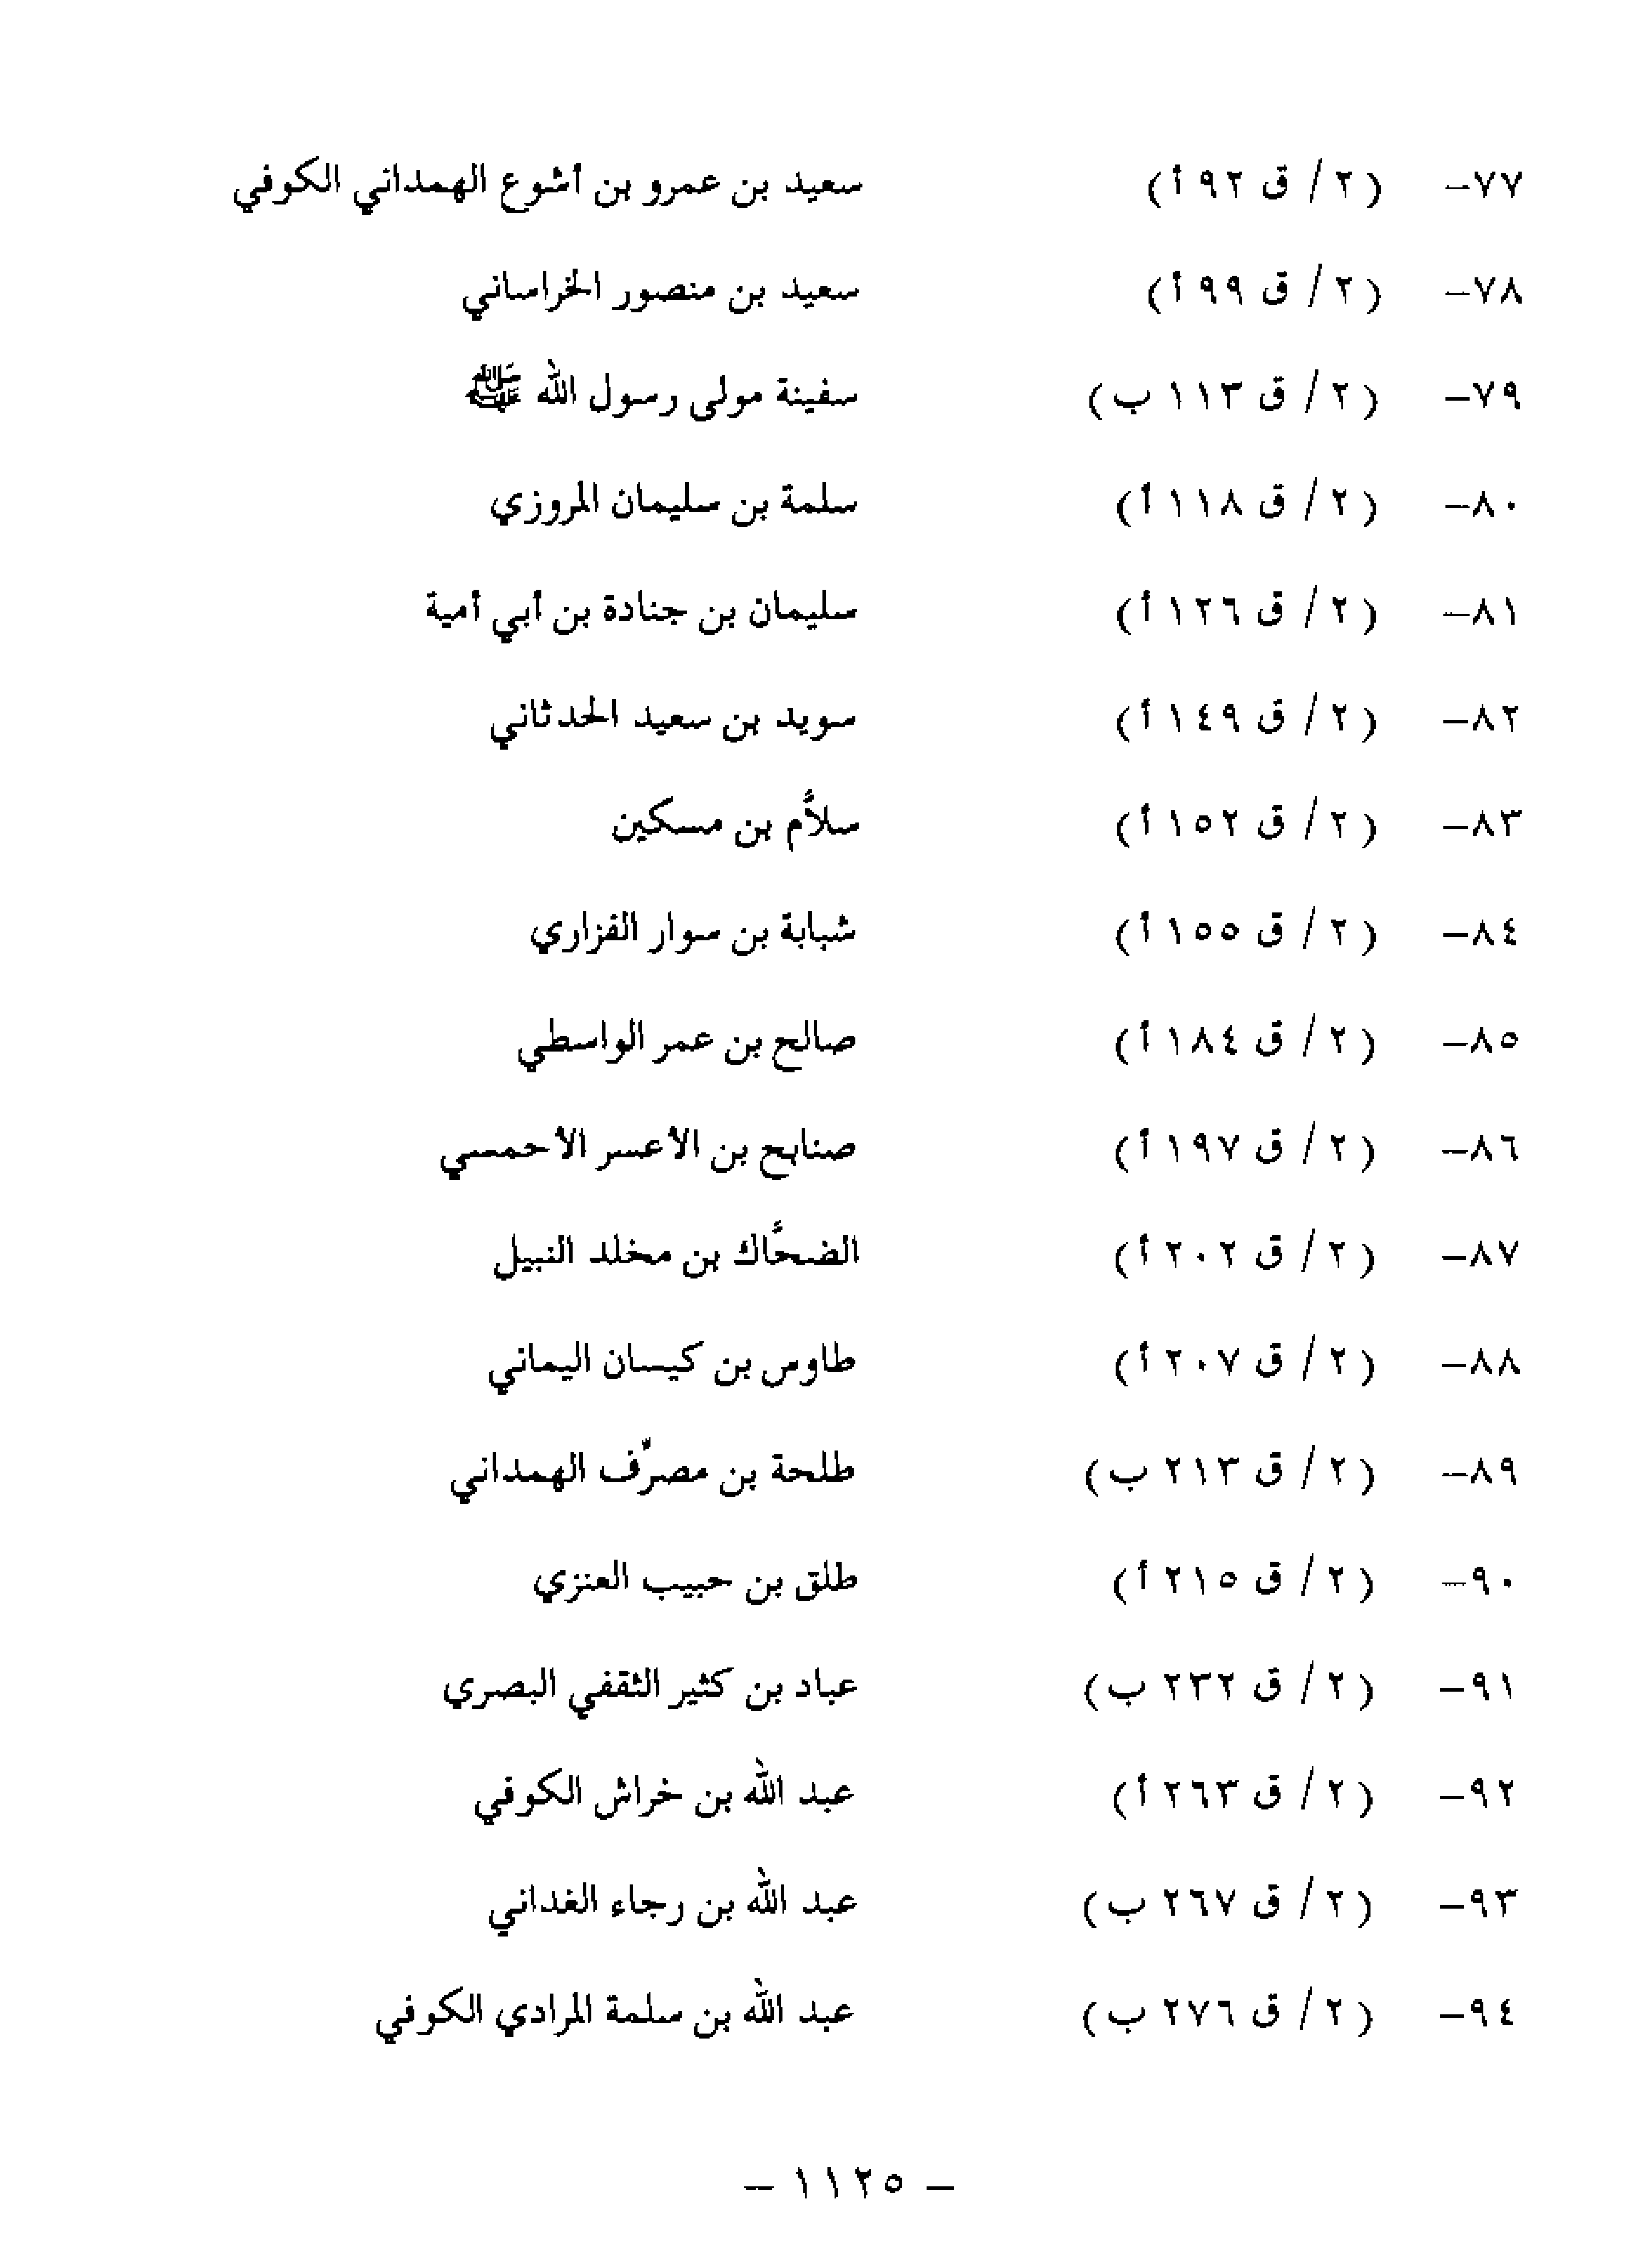 ٧٧- (٢ / ق ٩٢ أ) سعيد بن عمرو بن أشوع الهمداني الكوفي
٧٨- (٢ / ق ٩٩ أ) سعيد بن منصور الخراساني
٧٩- (٢ / ق ١١٣ ب) سفينة مولى رسول الله ﷺ
٨٠- (٢ / ق ١١٨ أ) سلمة بن سليمان المروزي
٨١- (٢ / ق ١٢٦ أ) سليمان بن جنادة بن أبي أمية
٨٢- (٢ / ق ١٤٩ أ) سويد بن سعيد الحدثاني
٨٣- (٢ / ق ١٥٢ أ) سلاَّم بن مسكين
٨٤- (٢ / ق ١٥٥ أ) شبابة بن سوار الفزاري
٨٥- (٢ / ق ١٨٤ أ) صالح بن عمر الواسطي
٨٦- (٢ / ق ١٩٧ أ) صنابح بن الأعسر الأحمسي
٨٧- (٢ / ق ٢٠٢ أ) الضحَّاك بن مخلد النبيل
٨٨- (٢ / ق ٢٠٧ أ) طاوس بن كيسان اليماني
٨٩- (٢ / ق ٢١٣ ب) طلحة بن مصرِّف الهمداني
٩٠- (٢ / ق ٢١٥ أ) طلق بن حبيب العنزي
٩١- (٢ / ق ٢٣٢ ب) عباد بن كثير الثقفي البصري
٩٢- (٢ / ق ٢٦٣ أ) عبد الله بن خراش الكوفي
٩٣- (٢ / ق ٢٦٧ ب) عبد الله بن رجاء الغداني
٩٤- (٢ / ق ٢٧٦ ب) عبد الله بن سلمة المرادي الكوفي
- ١١٢٥ -